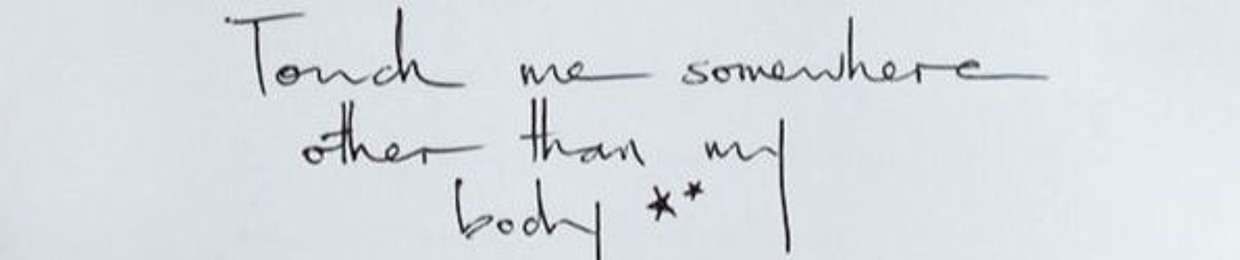 Touch me somewhere
other than my
body **